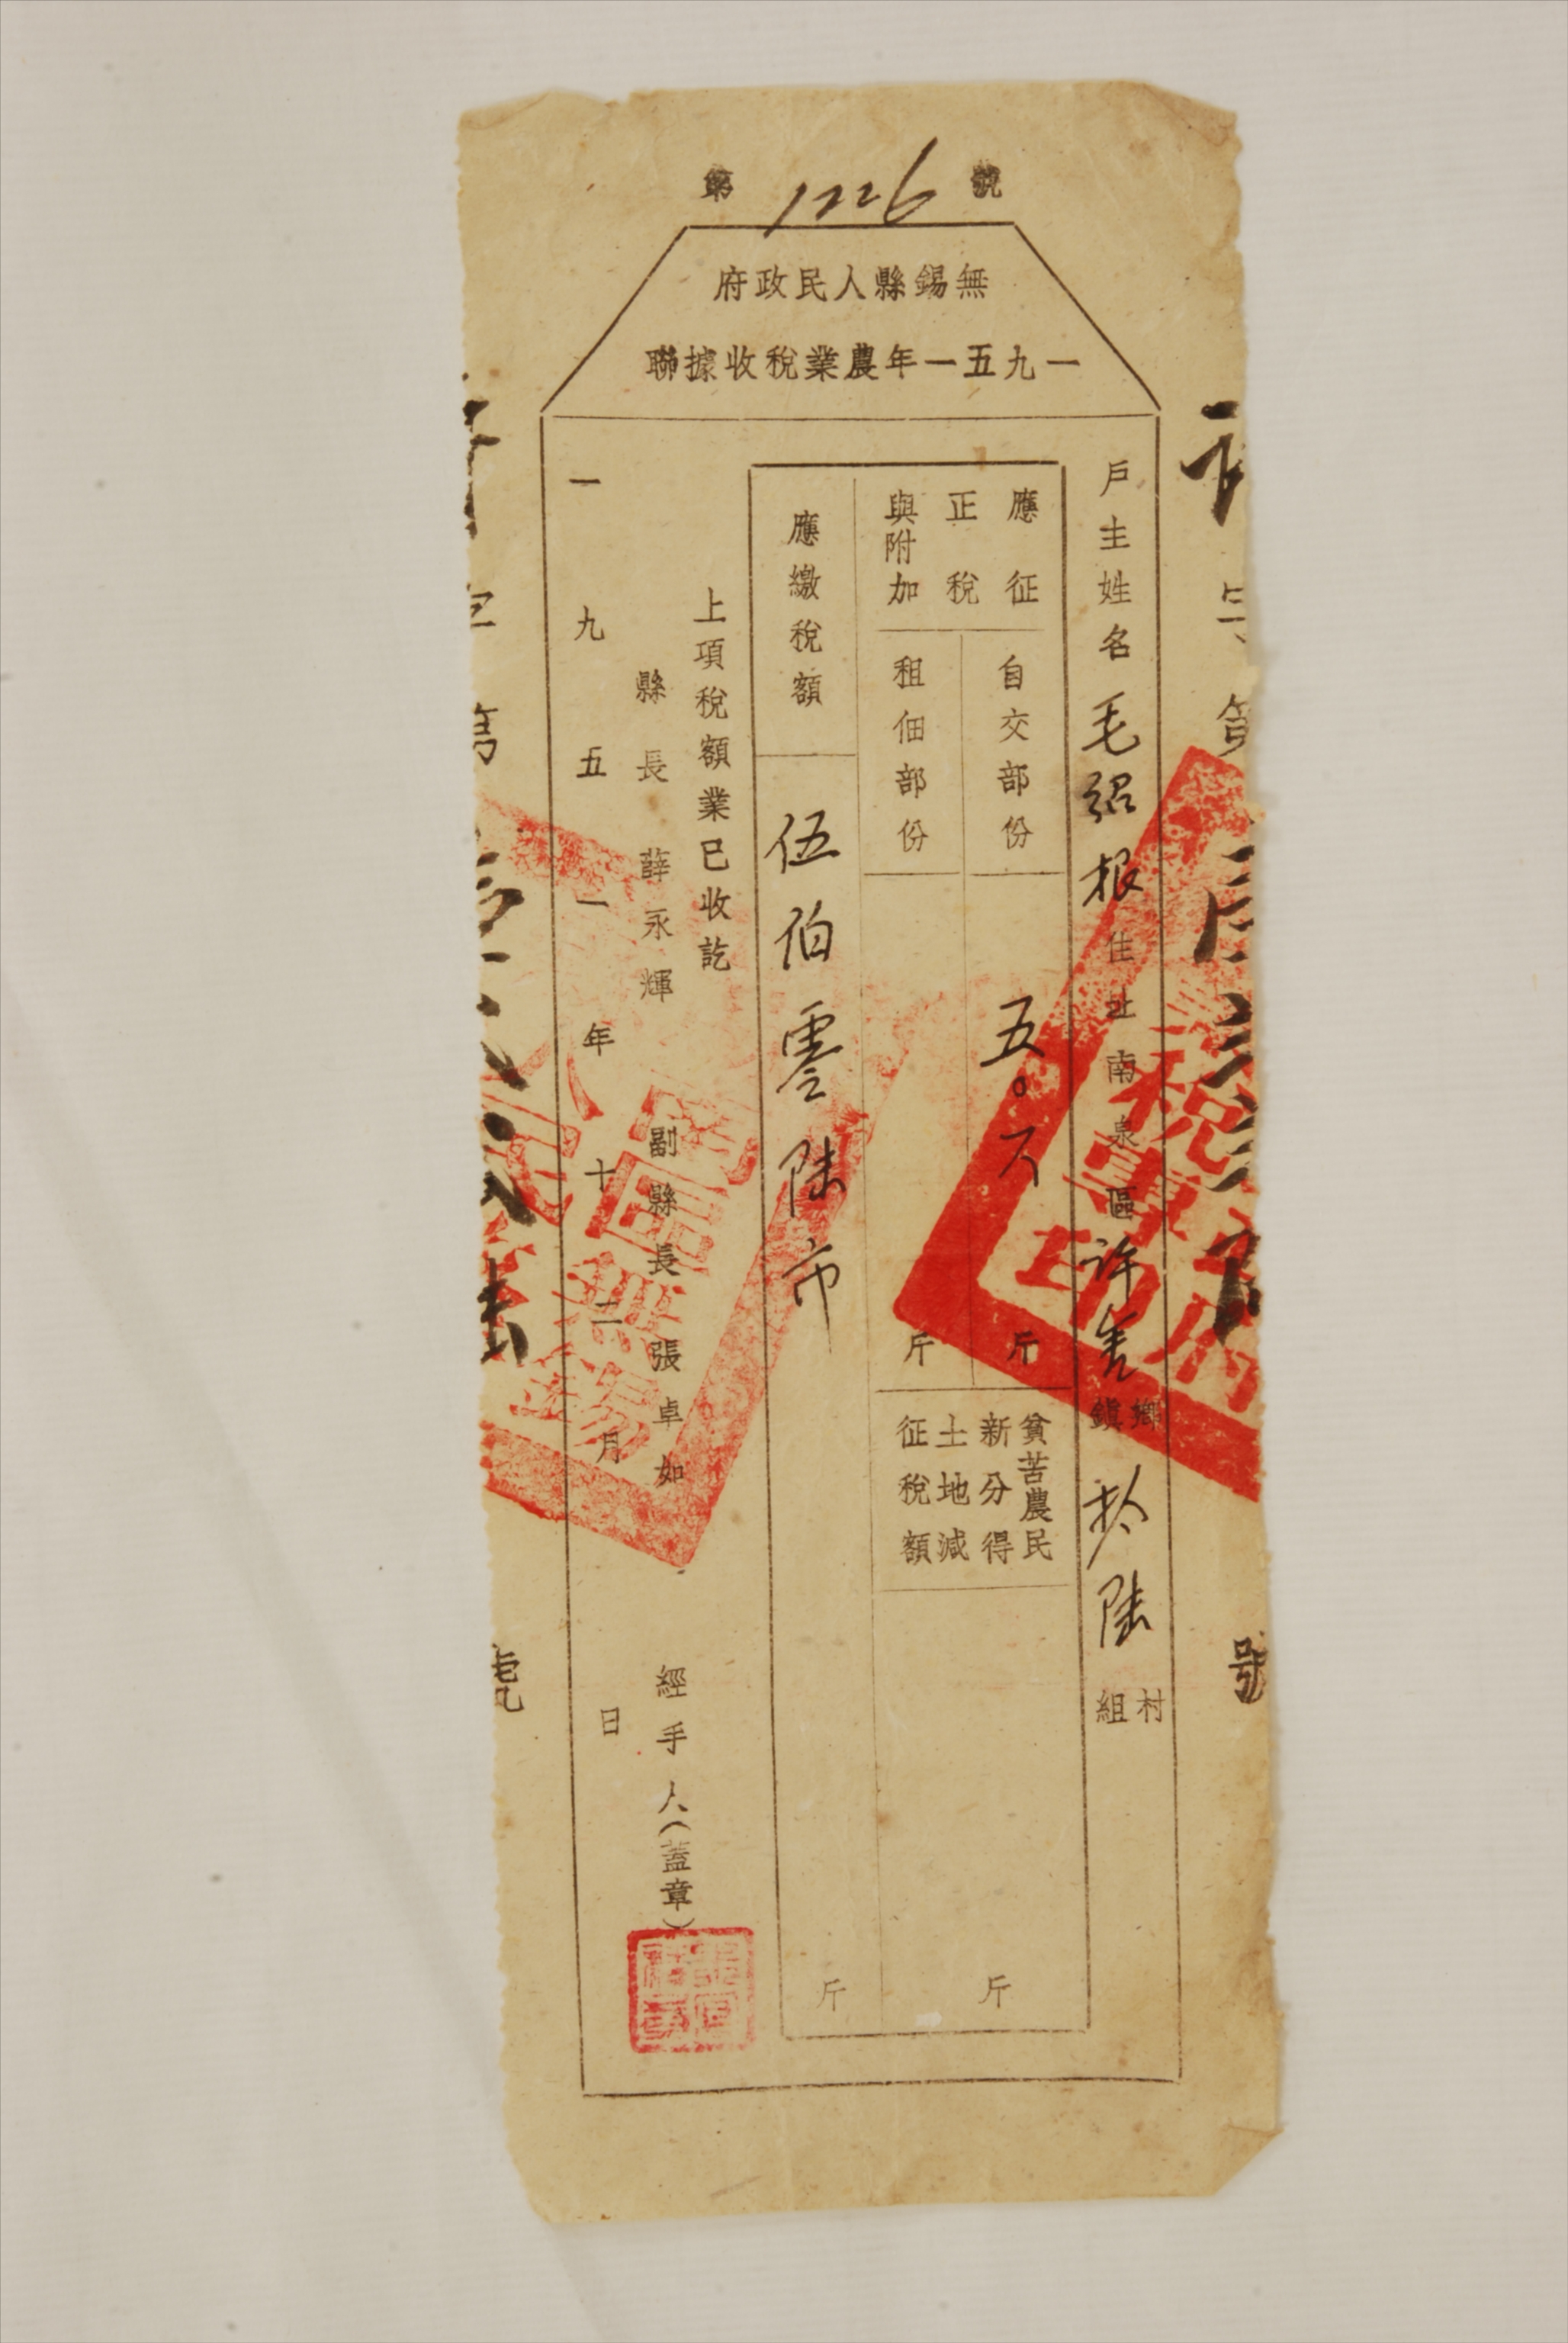 第 1226 號
無錫縣人民政府
一九五一年農業稅收據聯
字第
號
戶主姓名 毛紹根 住址南泉區 許舍 鄉鎮 拾陆 村組
應征正稅與附加
自交部份 五〇六 斤
租佃部份 斤
貧苦農民新分得土地減征稅額 斤
應繳稅額 伍佰零陆市 斤
上項稅額業已收訖
縣長 薛永輝 副縣長 張卓如 經手人(蓋章)
一九五一年十二月 日
字第
號